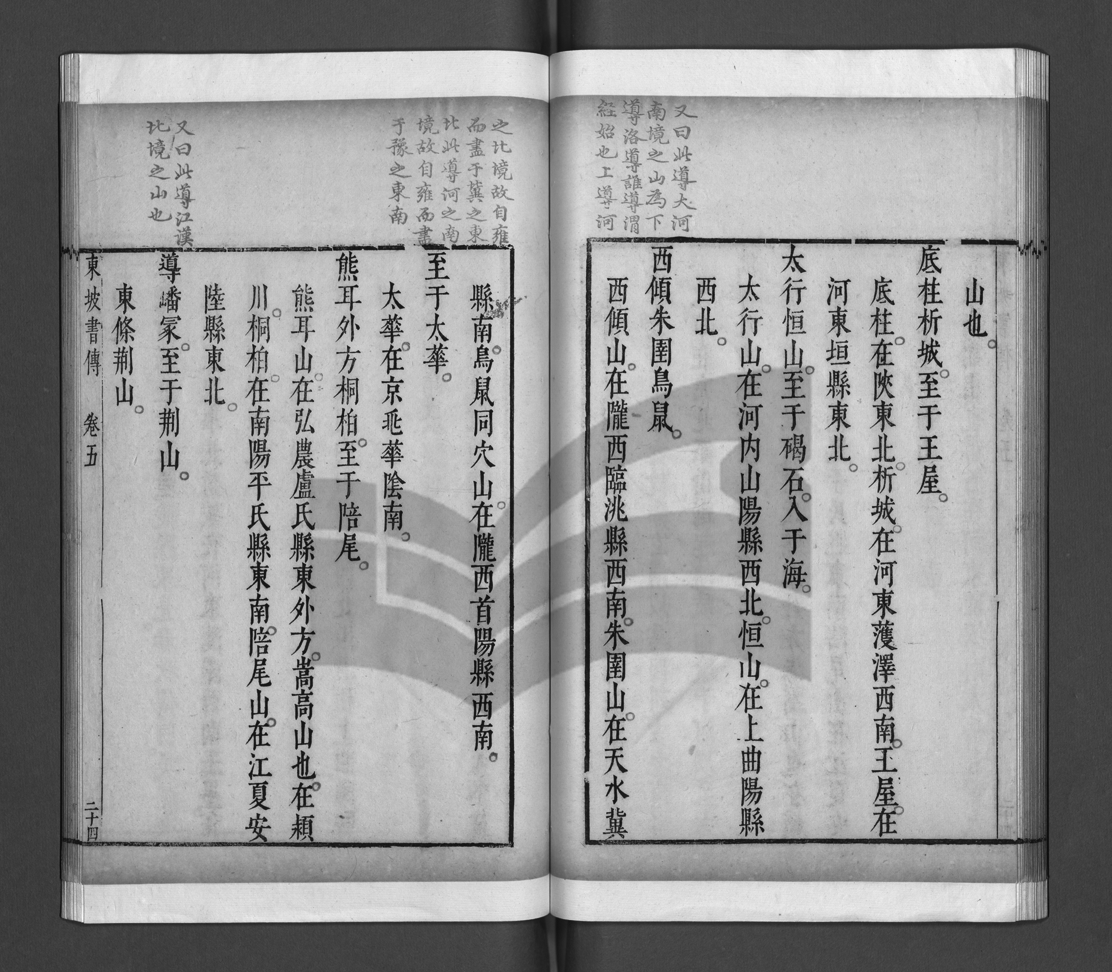 又曰此導大河
南境之山為下
導洛導誰導渭
経始也上導河
山也。
底柱析城。至于王屋。
底柱。在陜東北。析城。在河東濩澤西南。王屋。在
河東垣縣東北。
太行恒山。至于碣石。入于海。
太行山。在河内山陽縣西北。恒山。在上曲陽縣
西北。
西傾朱圉鳥鼠。
西傾山。在隴西臨洮縣西南。朱圉山。在天水冀
之北境故自雍
而盡于冀之東
北此導河之南
境故自雍而盡
于豫之東南
又曰此導江漢
北境之山也
縣南。鳥鼠同穴山。在隴西首陽縣西南。
至于太華。
太華。在京兆華陰南。
熊耳外方桐柏。至于陪尾。
熊耳山。在弘農盧氏縣東外方。嵩高山也。在潁
川。桐柏。在南陽平氏縣東南。陪尾山。在江夏安
陸縣東北。
導嶓冢。至于荆山。
東條荆山。
東坡書傳 卷五 二十四